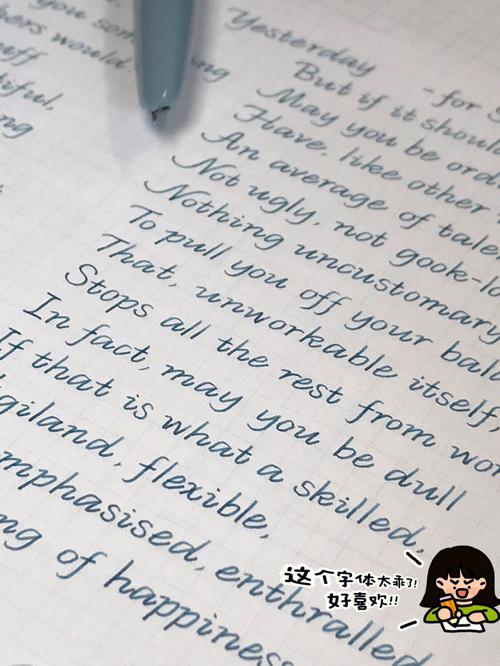 you som
hers would
uff
tiful,
ng
ng
Yesterday - for S
But if it shoul
May you be ord
Have, like other
An average of tale
Not ugly, not gook-lo
Nothing uncustomary
To pull you off your bala
That, unworkable itself,
Stops all the rest from wo
In fact, may you be dull
If that is what a skilled,
giland, flexible,
mphasised, enthralled
ng of happiness
这个字体太乖了!
好喜欢!!